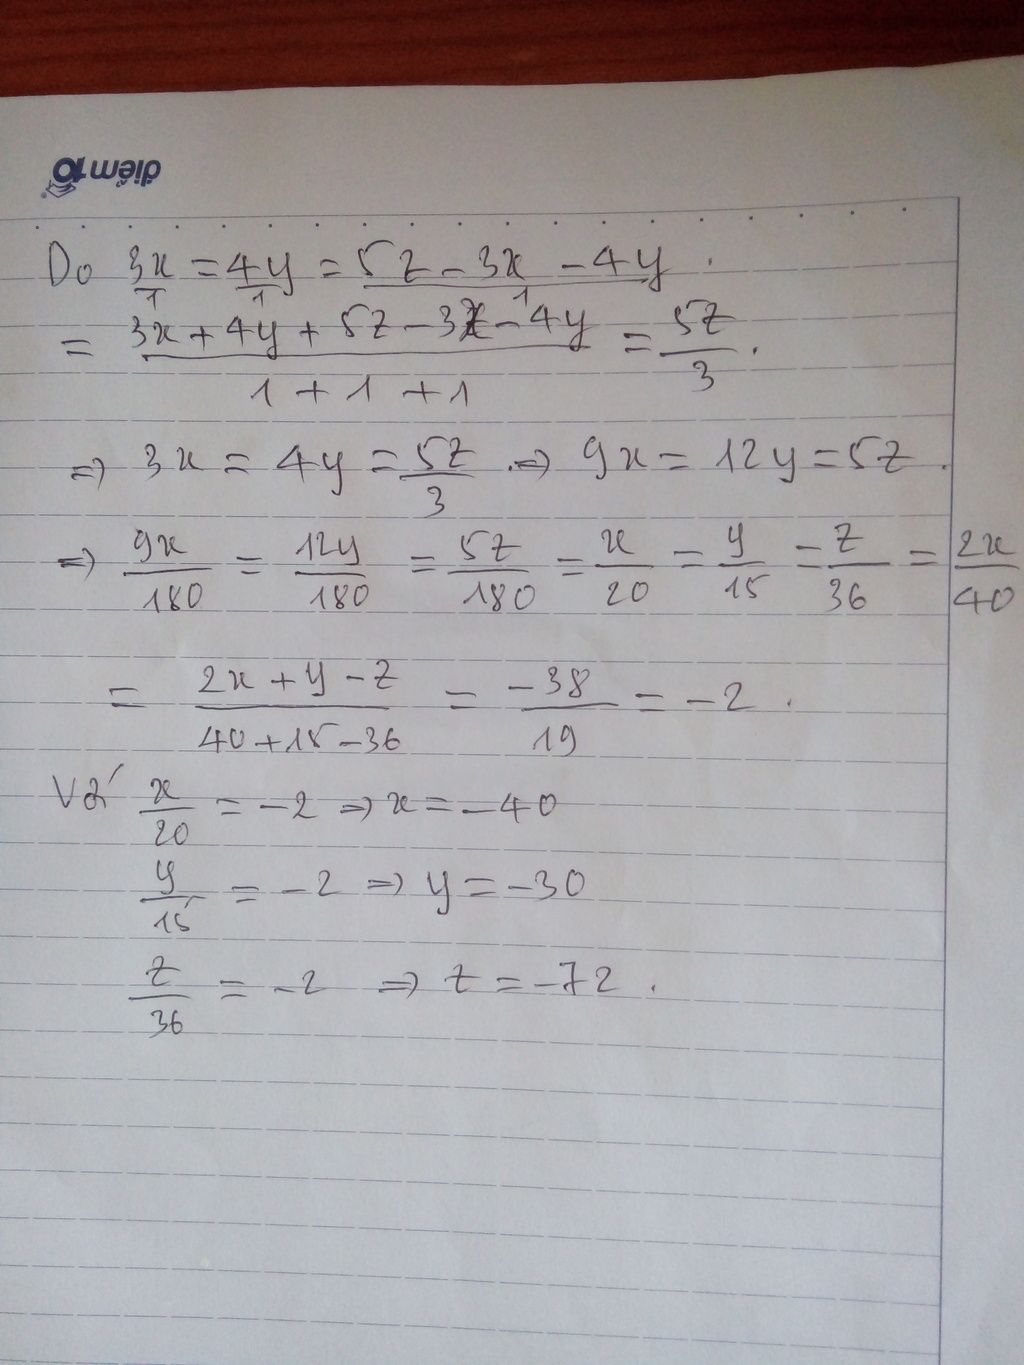 điểm 10
Do 3x/1 = 4y/1 = (5z - 3x - 4y)/1 .
= (3x + 4y + 5z - 3x - 4y)/(1 + 1 + 1) = 5z/3 .
=> 3x = 4y = 5z/3 . => 9x = 12y = 5z .
=> 9x/180 = 12y/180 = 5z/180 = x/20 = y/15 = z/36 = 2x/40
= (2x + y - z)/(40 + 15 - 36) = -38/19 = -2 .
x/20 = -2 => x = -40
y/15 = -2 => y = -30
z/36 = -2 => z = -72 .